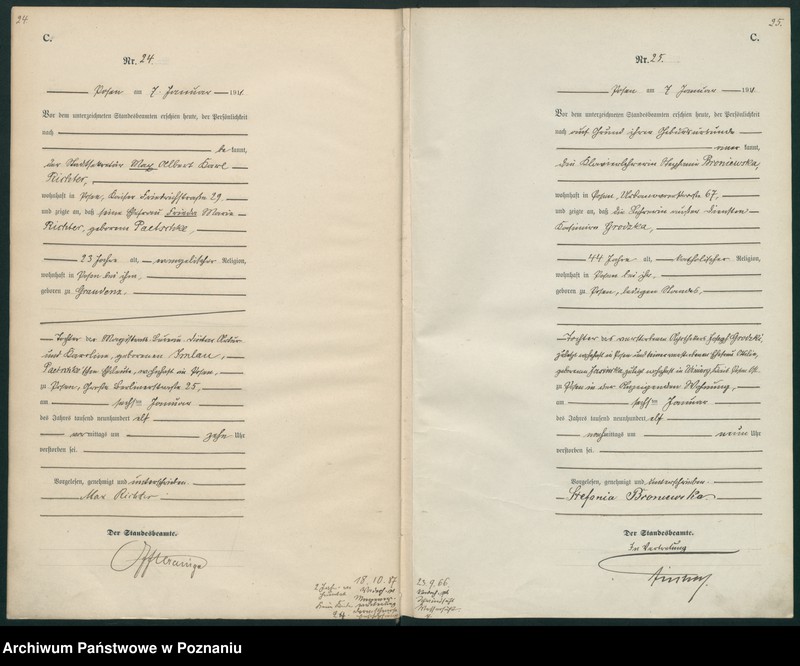 24
C.
Nr. 24
Posen am 7. Januar 1911
Vor dem unterzeichneten Standesbeamten erschien heute, der Persönlichkeit
nach
be kannt,
der Stadtsekretär Max Albert Karl
Richter,
wohnhaft in Posen, Kaiser Friedrichstraße 29,
und zeigte an, daß seine Ehefrau Frieda Marie
Richter, geborene Paetschke,
23 Jahre alt, evangelischer Religion,
wohnhaft in Posen bei ihm,
geboren zu Graudenz,
Tochter des Magistrats-Bureau-Diätar
und Karoline, geborenen
Paetschke'schen Eheleute, wohnhaft in Posen,
zu Posen, Große Berlinerstraße 25,
am sechsten Januar
des Jahres tausend neunhundert elf
vormittags um zehn Uhr
verstorben sei.
Vorgelesen, genehmigt und unterschrieben.
Max Richter
Der Standesbeamte.
18.10.87
25.
C.
Nr. 25.
Posen am 7. Januar 1911
Vor dem unterzeichneten Standesbeamten erschien heute, der Persönlichkeit
nach auf Grund ihrer Geburtsurkunde
aner kannt,
die Klavierlehrerin Stephania Broniewska,
wohnhaft in Posen, 67,
und zeigte an, daß die Lehrerin
Kasimira Grodzka,
44 Jahre alt, katholischer Religion,
wohnhaft in Posen bei ihr,
geboren zu Posen, ledigen Standes,
Tochter des verstorbenen Apothekers Joseph Grodzki,
zuletzt wohnhaft in Posen und seiner verstorbenen Ehefrau
geborenen zuletzt wohnhaft in
zu Posen in der Anzeigenden Wohnung,
am sechsten Januar
des Jahres tausend neunhundert elf
nachmittags um neun Uhr
verstorben sei.
Vorgelesen, genehmigt und unterschrieben.
Stefania Broniewska
Der Standesbeamte.
In Vertretung
23.9.66
Archiwum Państwowe w Poznaniu